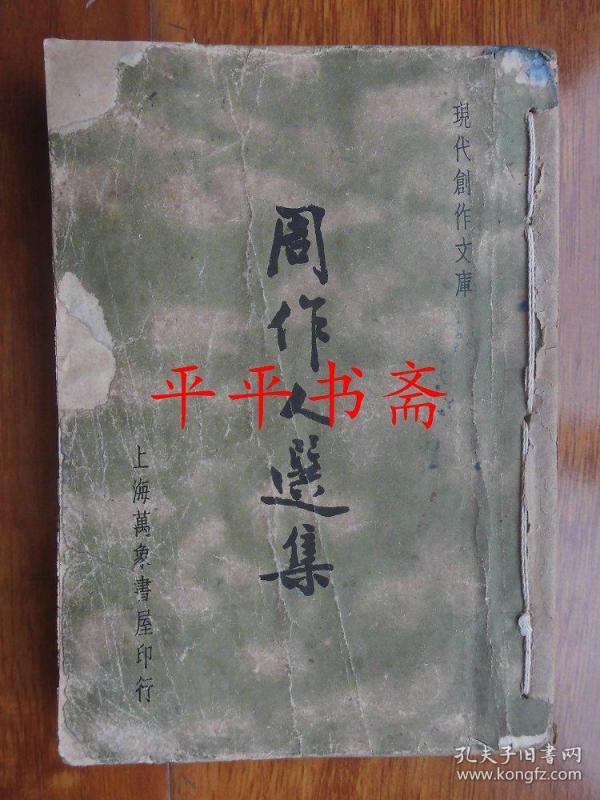 現代創作文庫
周作人選集
上海萬象書屋印行
平平书斋
孔夫子旧书网
www.kongfz.com